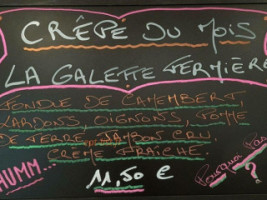 CRÊPE DU MOIS
LA GALETTE FERMIÈRE
FONDUE DE CAMEMBERT,
LARDONS, OIGNONS, POMME
DE TERRE, JAMBON CRU
CRÈME FRAÎCHE
HUMM...
11,50 €
Pourquoi Pas
?